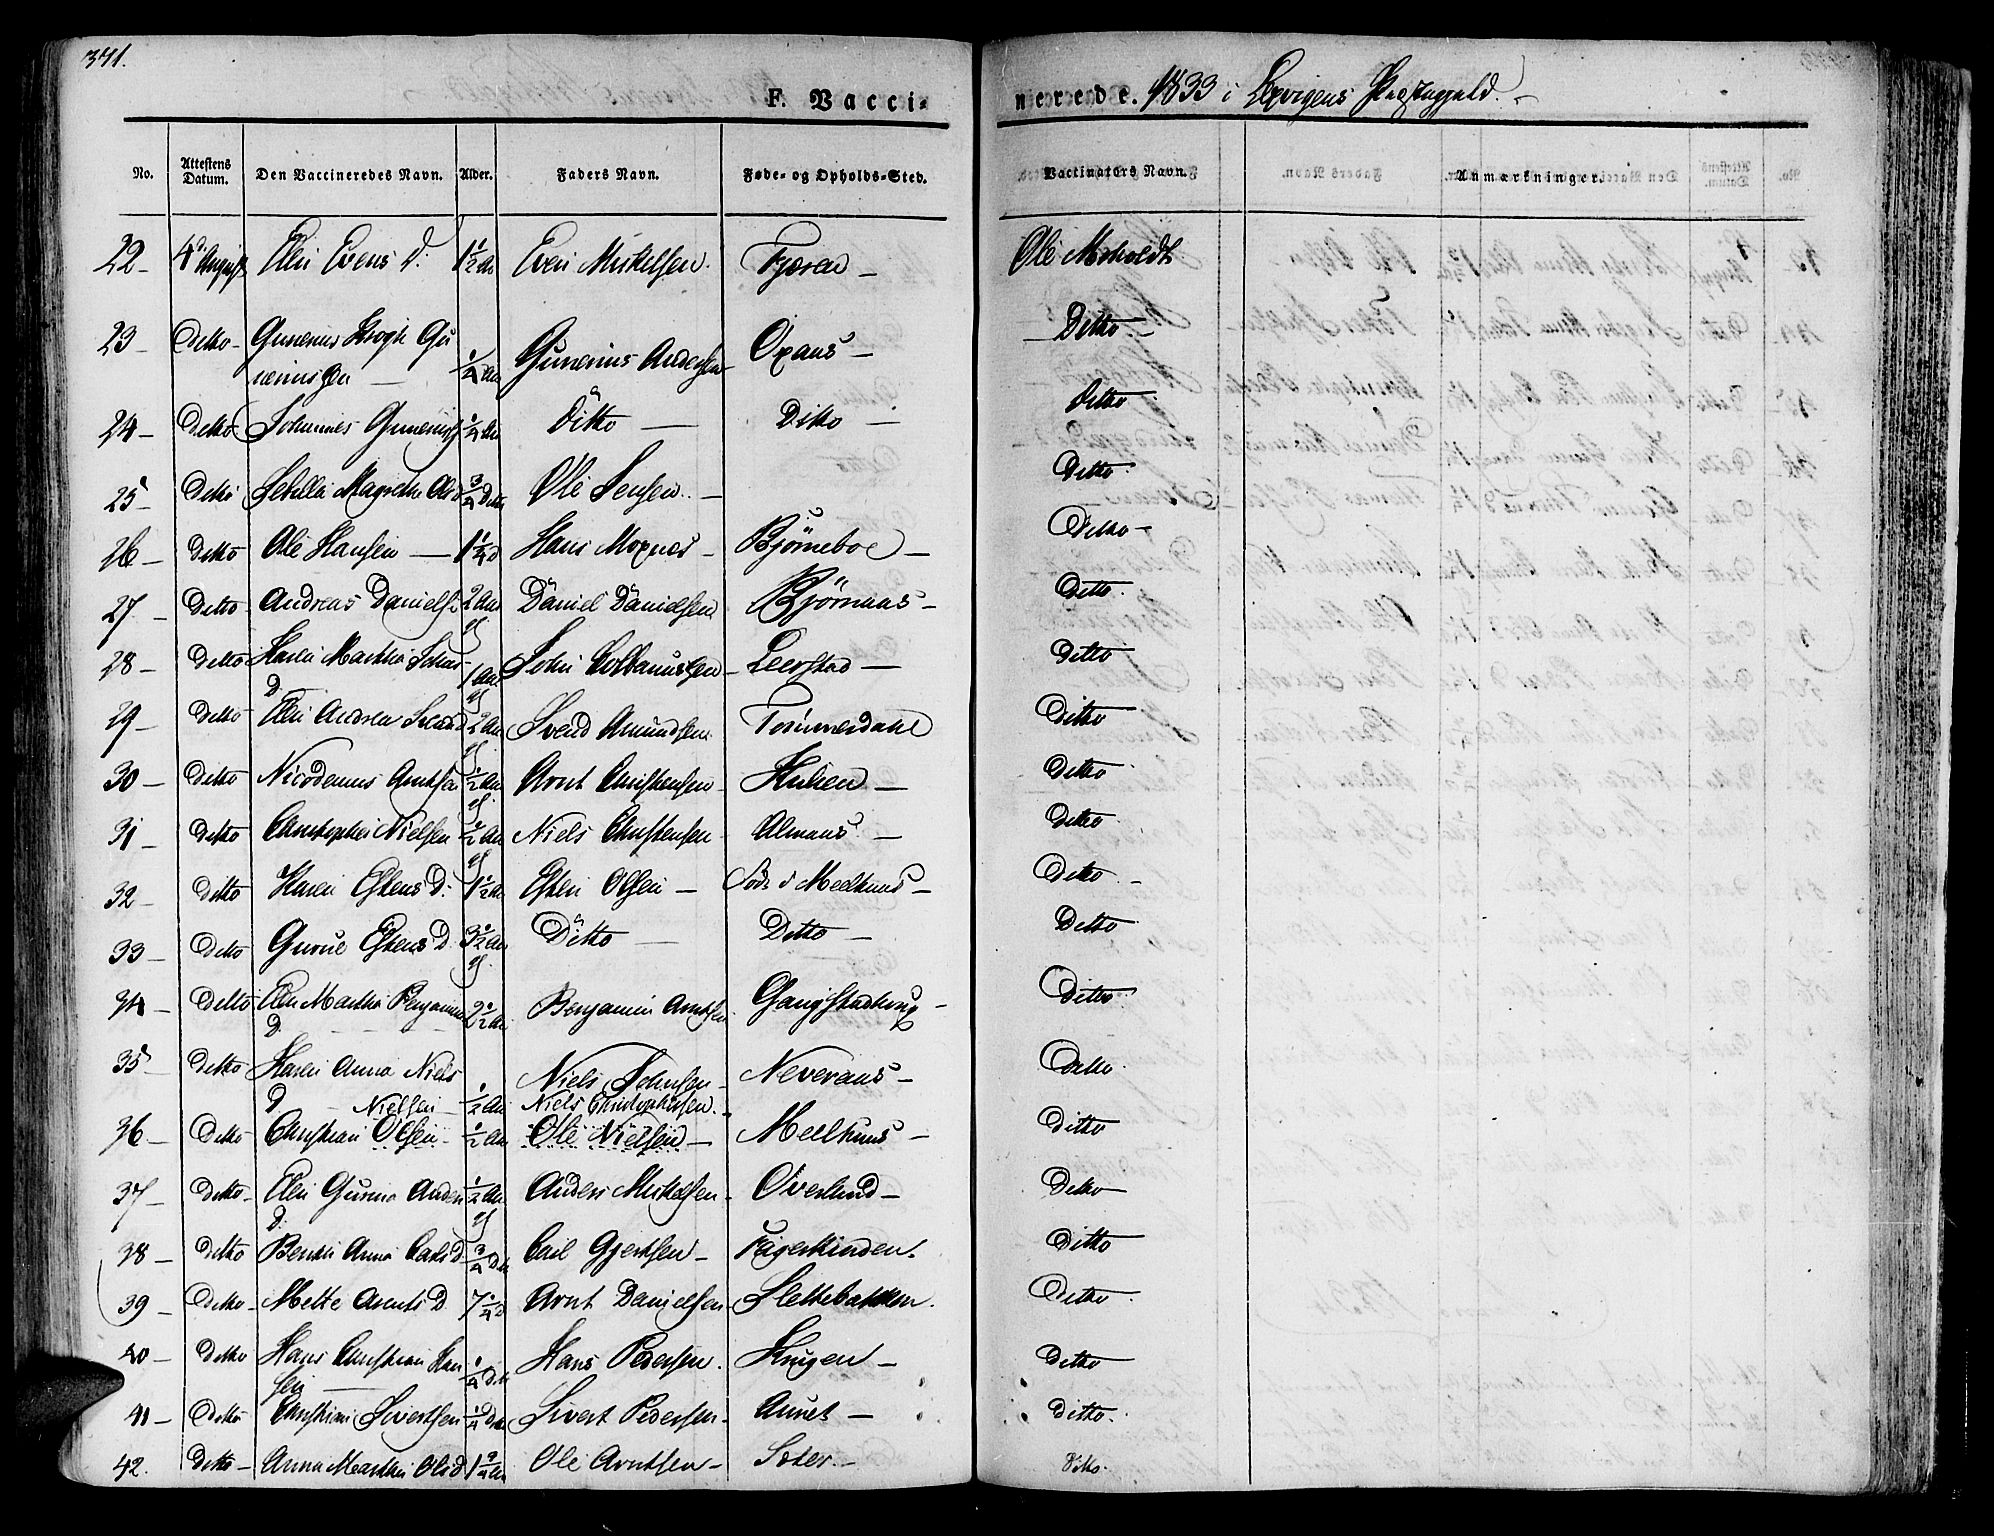 341.
F. Vacci-
nerede. 1833 i Lexvigens Præstegjeld.
No. Attestens Datum. Den Vaccineredes Navn. Alder. Faders Navn. Føde- og Opholds-Sted. Vactinators Navn. Anmærkninger.
22 - 4d August Elen Evens D: 1 1/2 An Even Mikelsen. Fjæren - Ole Moholdt
23 - Ditto - Gunerius Krogh Gu
neriussen - 1/4 An Gunerius Andersen Oxaas - Ditto -
24 - Ditto Johannes Guneriuss 1/4 An Ditto - Ditto - Ditto
25 - Ditto Sebilla Magrethe Ols d 3/4 Ditto Ole Jensen - Ditto
26 - Ditto Ole Hansen - 1 1/4 d Hans Moxnes - Bjørneboe - Ditto -
27 - Ditto Andreas Danielsen 2 An Daniel Danielsen Bjørnaas - Ditto
28 - Ditto Karen Martha Johns
D 1 An John Colbanussen - Leerstad - Ditto
29 - Ditto Elen Andrea Svends d 2 An Svend Amundsen Tømmerdahl Ditto
30 - Ditto Nicodemus Arntsen 1/2 An Arnt Christensen - Hulien - Ditto
31 - Ditto Christopher Nielsen 1/2 An Niels Christensen - Almaas - Ditto
32 - Ditto Karen Estens D: 1 1/2 An Esten Olsen - i Meelhuus - Ditto -
33 - Ditto Gurue Estens D. 3 1/2 An Ditto - Ditto - Ditto
34 - Ditto Elen Martha Benjamins
D 2 1/2 An Benjamin Arntsen Gangstadhoug - Ditto
35 - Ditto Karen Anna Niels
D 1/2 An Niels Johnsen - Neveraas - Ditto
Nielsen - Niels Christophersen.
36 - Ditto Christian Olsen - 1/2 An Ole Nielsen - Meelhuus - Ditto
37 - Ditto Elen Gurina Anders
D: 1/2 An Anders Mikelsen - Overlund - Ditto
38 - Ditto Beret Anna Carls D 3/4 Dit Carl Gjertsen - Fagerhinden. Ditto
39 - Ditto - Mette Arents D 7 1/4 d Arnt Danielsen - Slettebakken. Ditto
40 - Ditto Hans Christian Han
sen 1/4 Dit Hans Pedersen. Krugen - Ditto
41 - Ditto Christian Sivertsen 1/4 Dit Sivert Pedersen - Auret - Ditto
42. Ditto - Anna Martha Ols d 1 3/4 An Ole Arntsen - Sæter - Ditto.